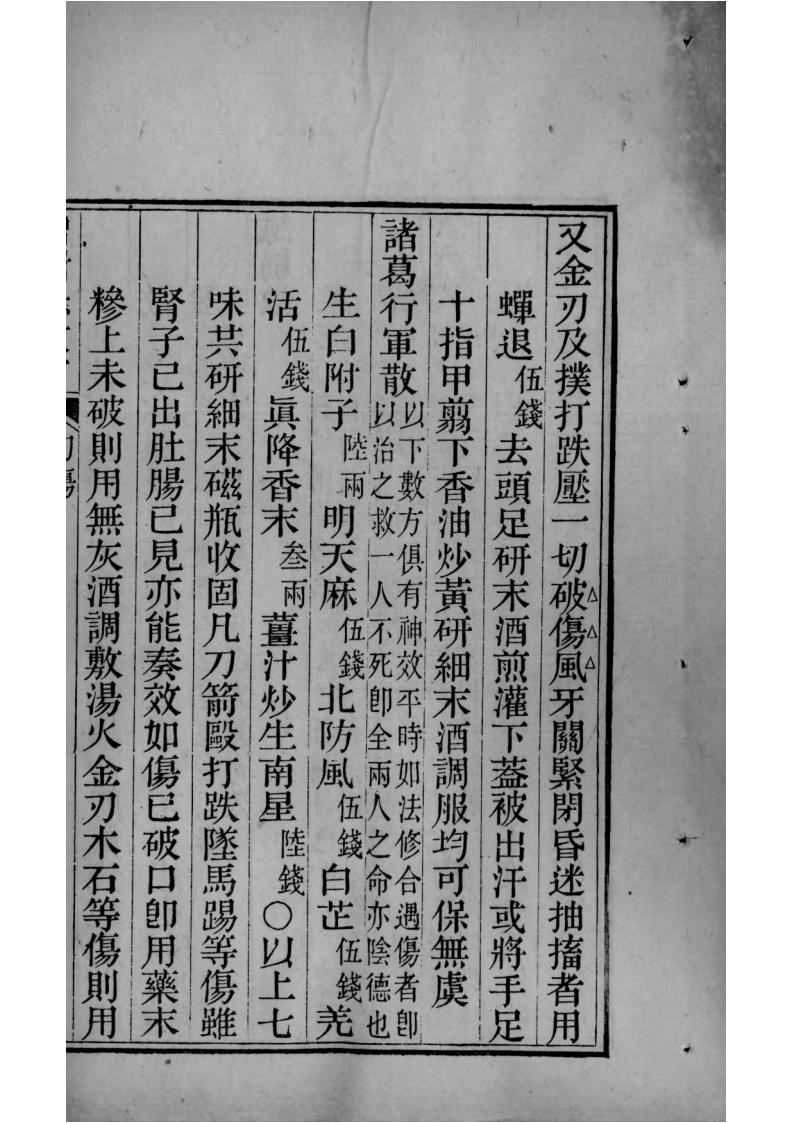 又金刃及撲打跌壓一切破傷風牙關緊閉昏迷抽搐者用
蟬退伍錢去頭足研末酒煎灌下蓋被出汗或將手足
十指甲翦下香油炒黃研細末酒調服均可保無虞
諸葛行軍散以下數方俱有神效平時如法修合遇傷者卽
以治之救一人不死卽全兩人之命亦陰德也
生白附子陸兩明天麻伍錢北防風伍錢白芷伍錢羌
活伍錢眞降香末叁兩薑汁炒生南星陸錢○以上七
味共研細末磁瓶收固凡刀箭毆打跌墜馬踢等傷雖
腎子已出肚腸已見亦能奏效如傷已破口卽用藥末
糝上未破則用無灰酒調敷湯火金刃木石等傷則用